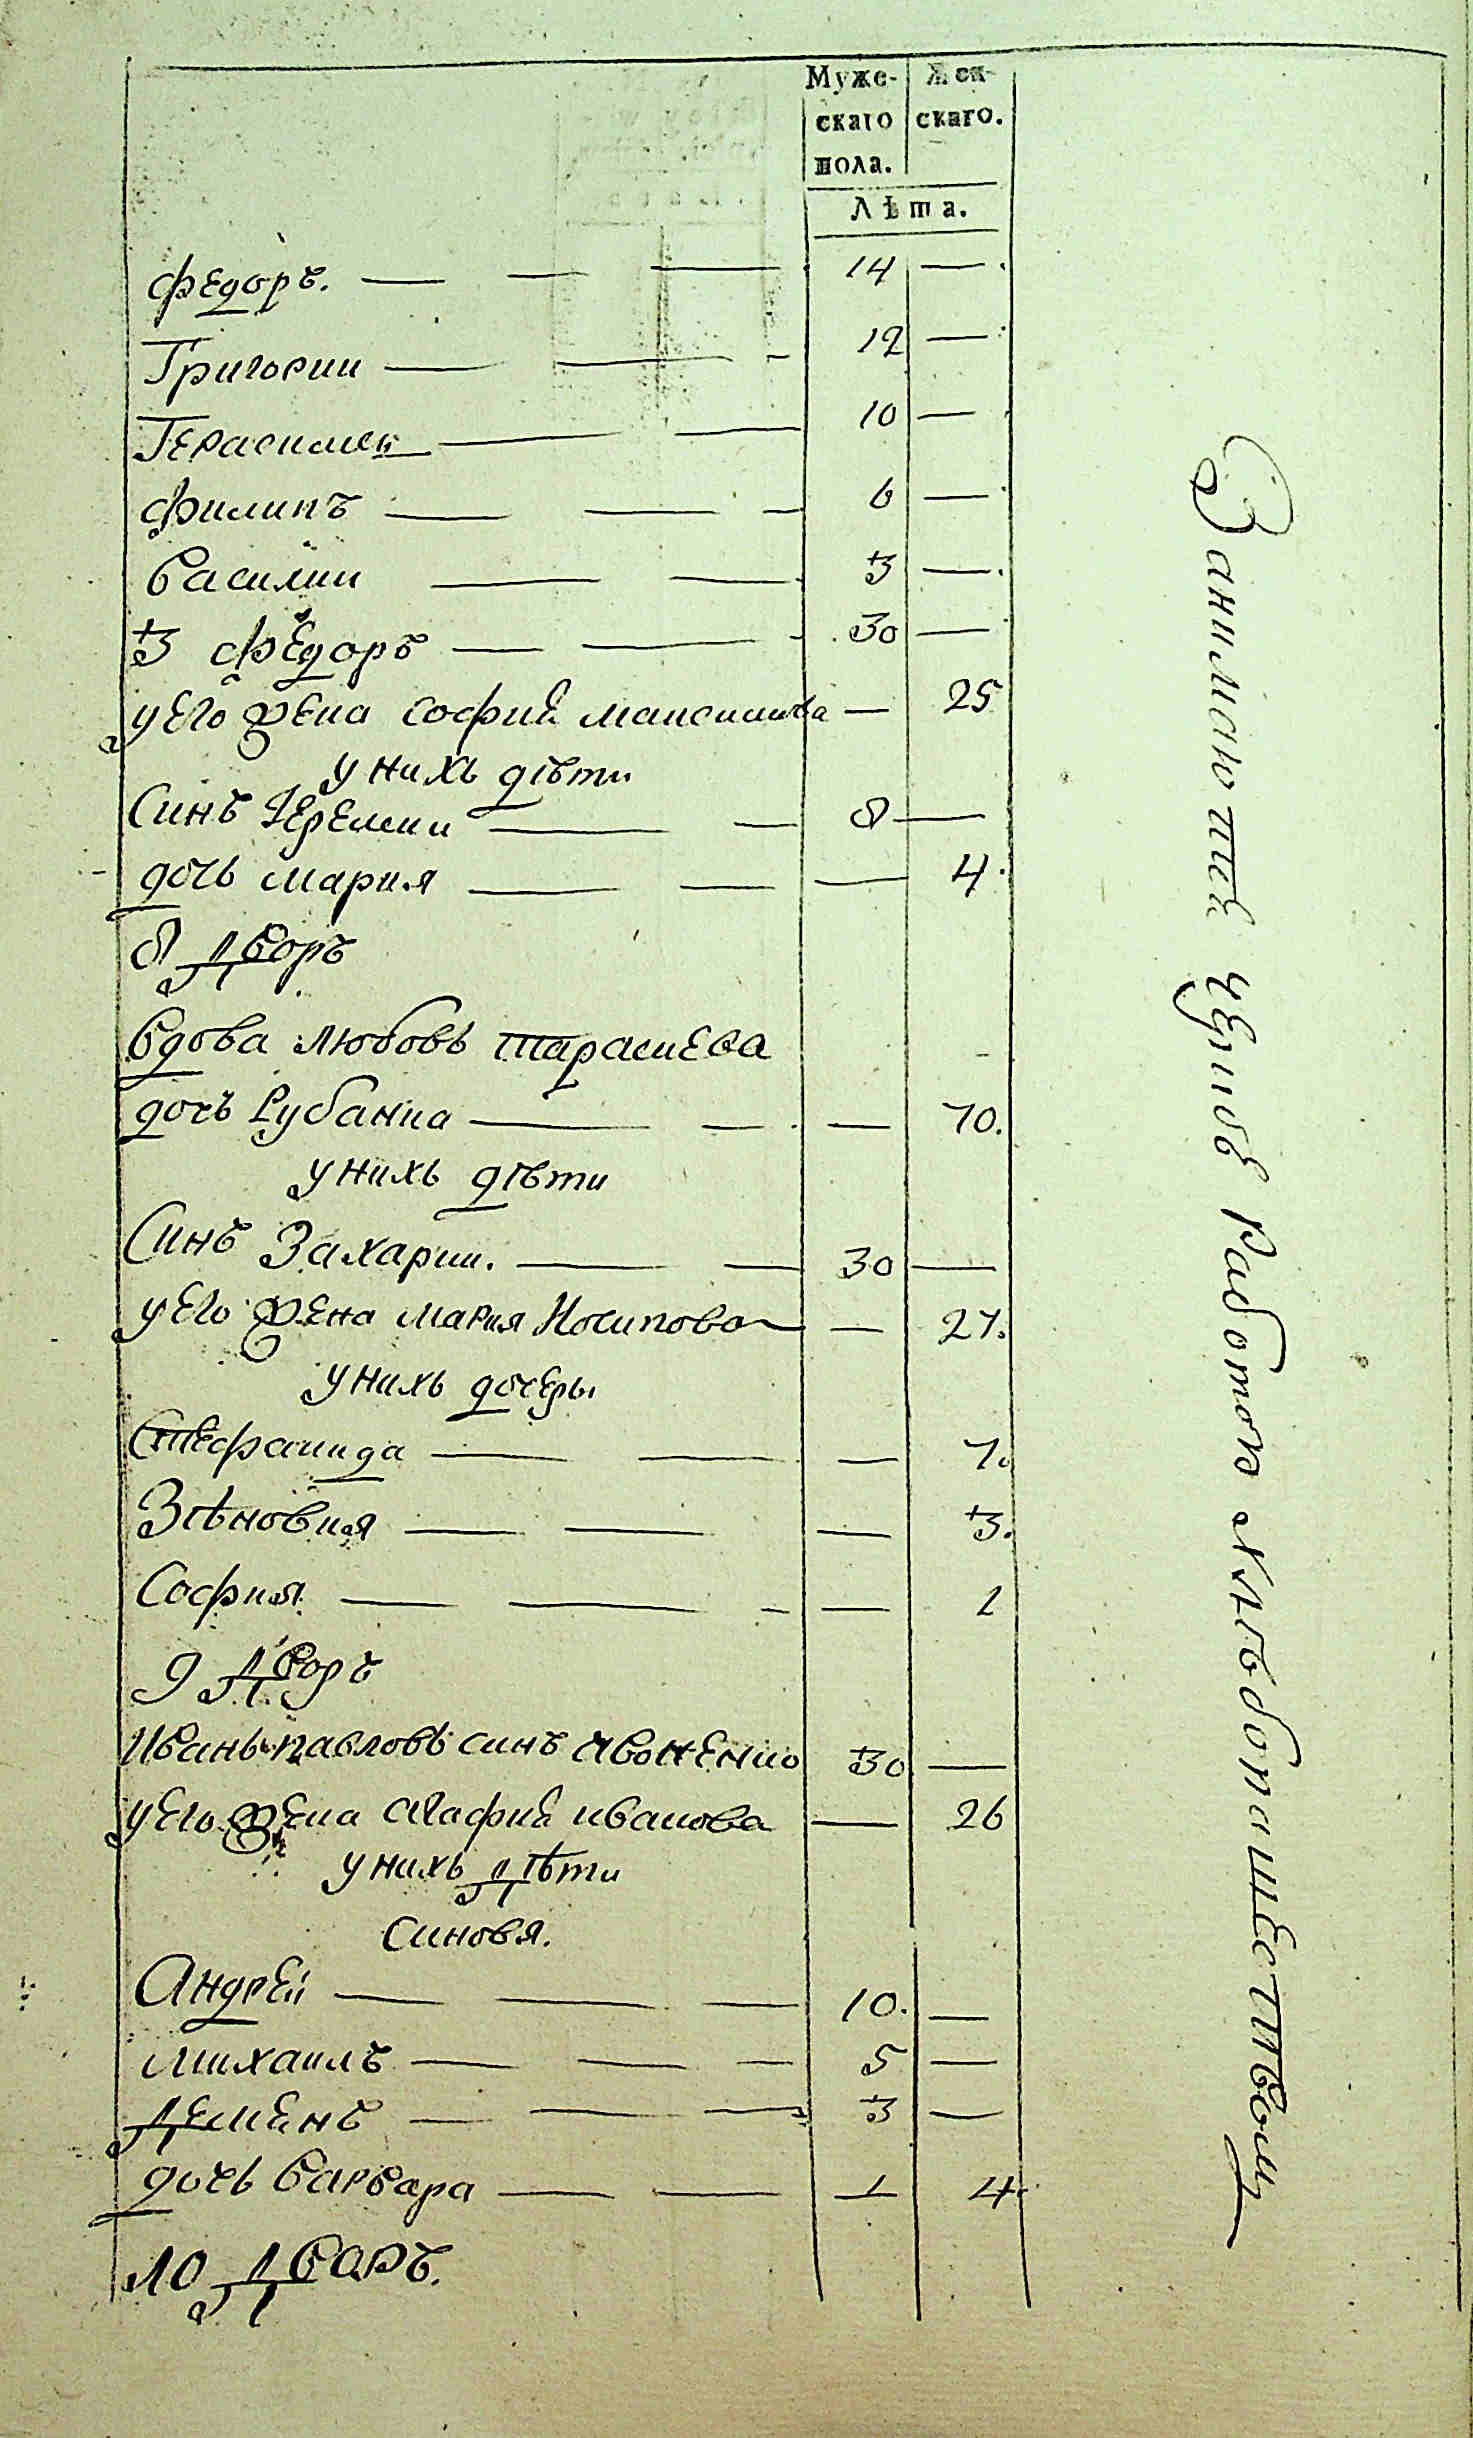 Муже- Жен-
скаго скаго.
пола.
Лѣта.
Федоръ. 14
Григории 12
Герасимъ 10
Филипъ 6
Василии 3
3 Федоръ 30
у Его жена Софиѣ Максимова 25
у нихъ дѣти
Синъ Иеремии 8
дочь Мария 4
8 Дворъ
Вдова Любовь Тарасиева
дочь Рубанка 70.
у нихъ дѣти
Синъ Захарии. 30
у Его жена Мария Носипова 27.
у нихъ дочеры
Стефанида 7.
Зѣновия 3.
София 1
9 Дворъ
Иванъ Павловъ синъ 30
у Его жена Агафиѣ Иванова 26
у нихъ Дѣти
Синовя.
Андреи 10.
Михаилъ 5
Деменъ 3
дочь Варвара 4
10 Дворъ.
работою хлѣбопашеством